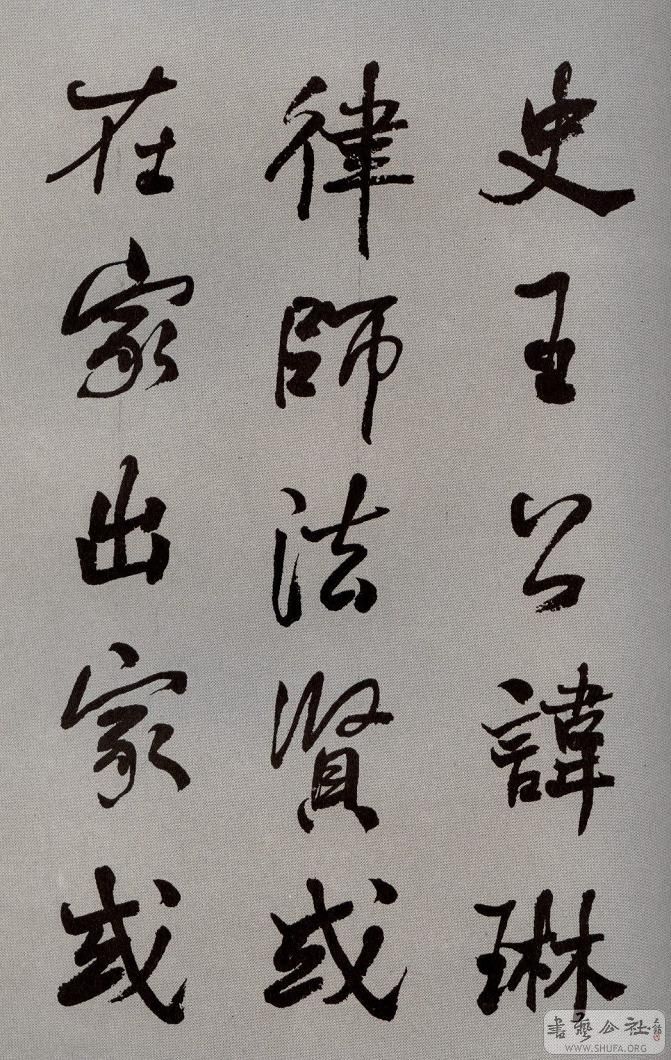 史王公諱琳
律師法賢或
在家出家或
書藝公社
WWW.SHUFA.ORG